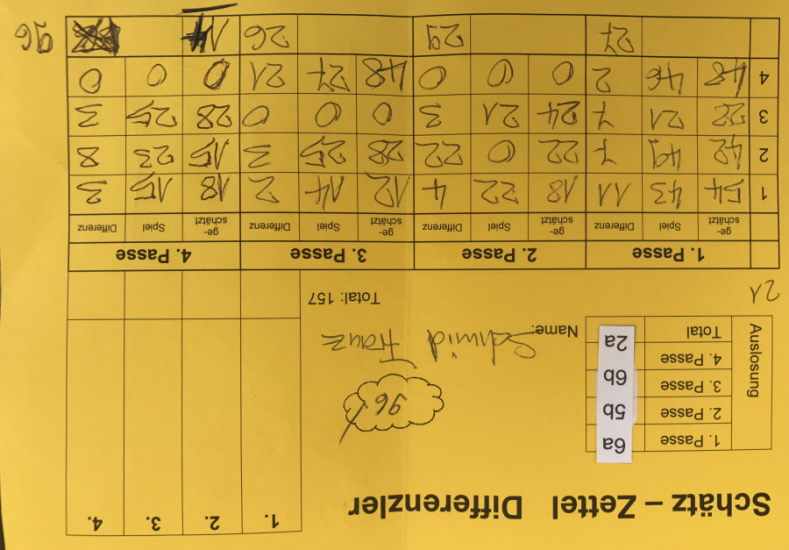 Schätz – Zettel Differenzler
1. 2. 3. 4.
Auslosung
1. Passe 6a
2. Passe 5b
3. Passe 6b
4. Passe 2a
Total
96
Name: Schmid Franz
21
Total: 157
1. Passe 2. Passe 3. Passe 4. Passe
ge-schätzt Spiel Differenz ge-schätzt Spiel Differenz ge-schätzt Spiel Differenz ge-schätzt Spiel Differenz
1 54 43 11 18 22 4 12 14 2 18 15 3
2 42 49 7 22 0 22 28 25 3 15 23 8
3 28 21 7 24 21 3 0 0 0 28 25 3
4 48 46 2 0 0 0 48 27 21 0 0 0
27 29 26 14 96